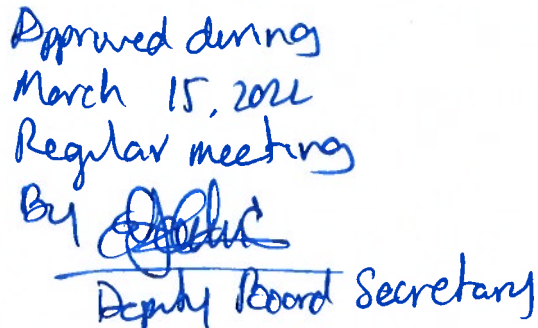 Approved during
March 15, 2022
Regular meeting
By
Deputy Board Secretary